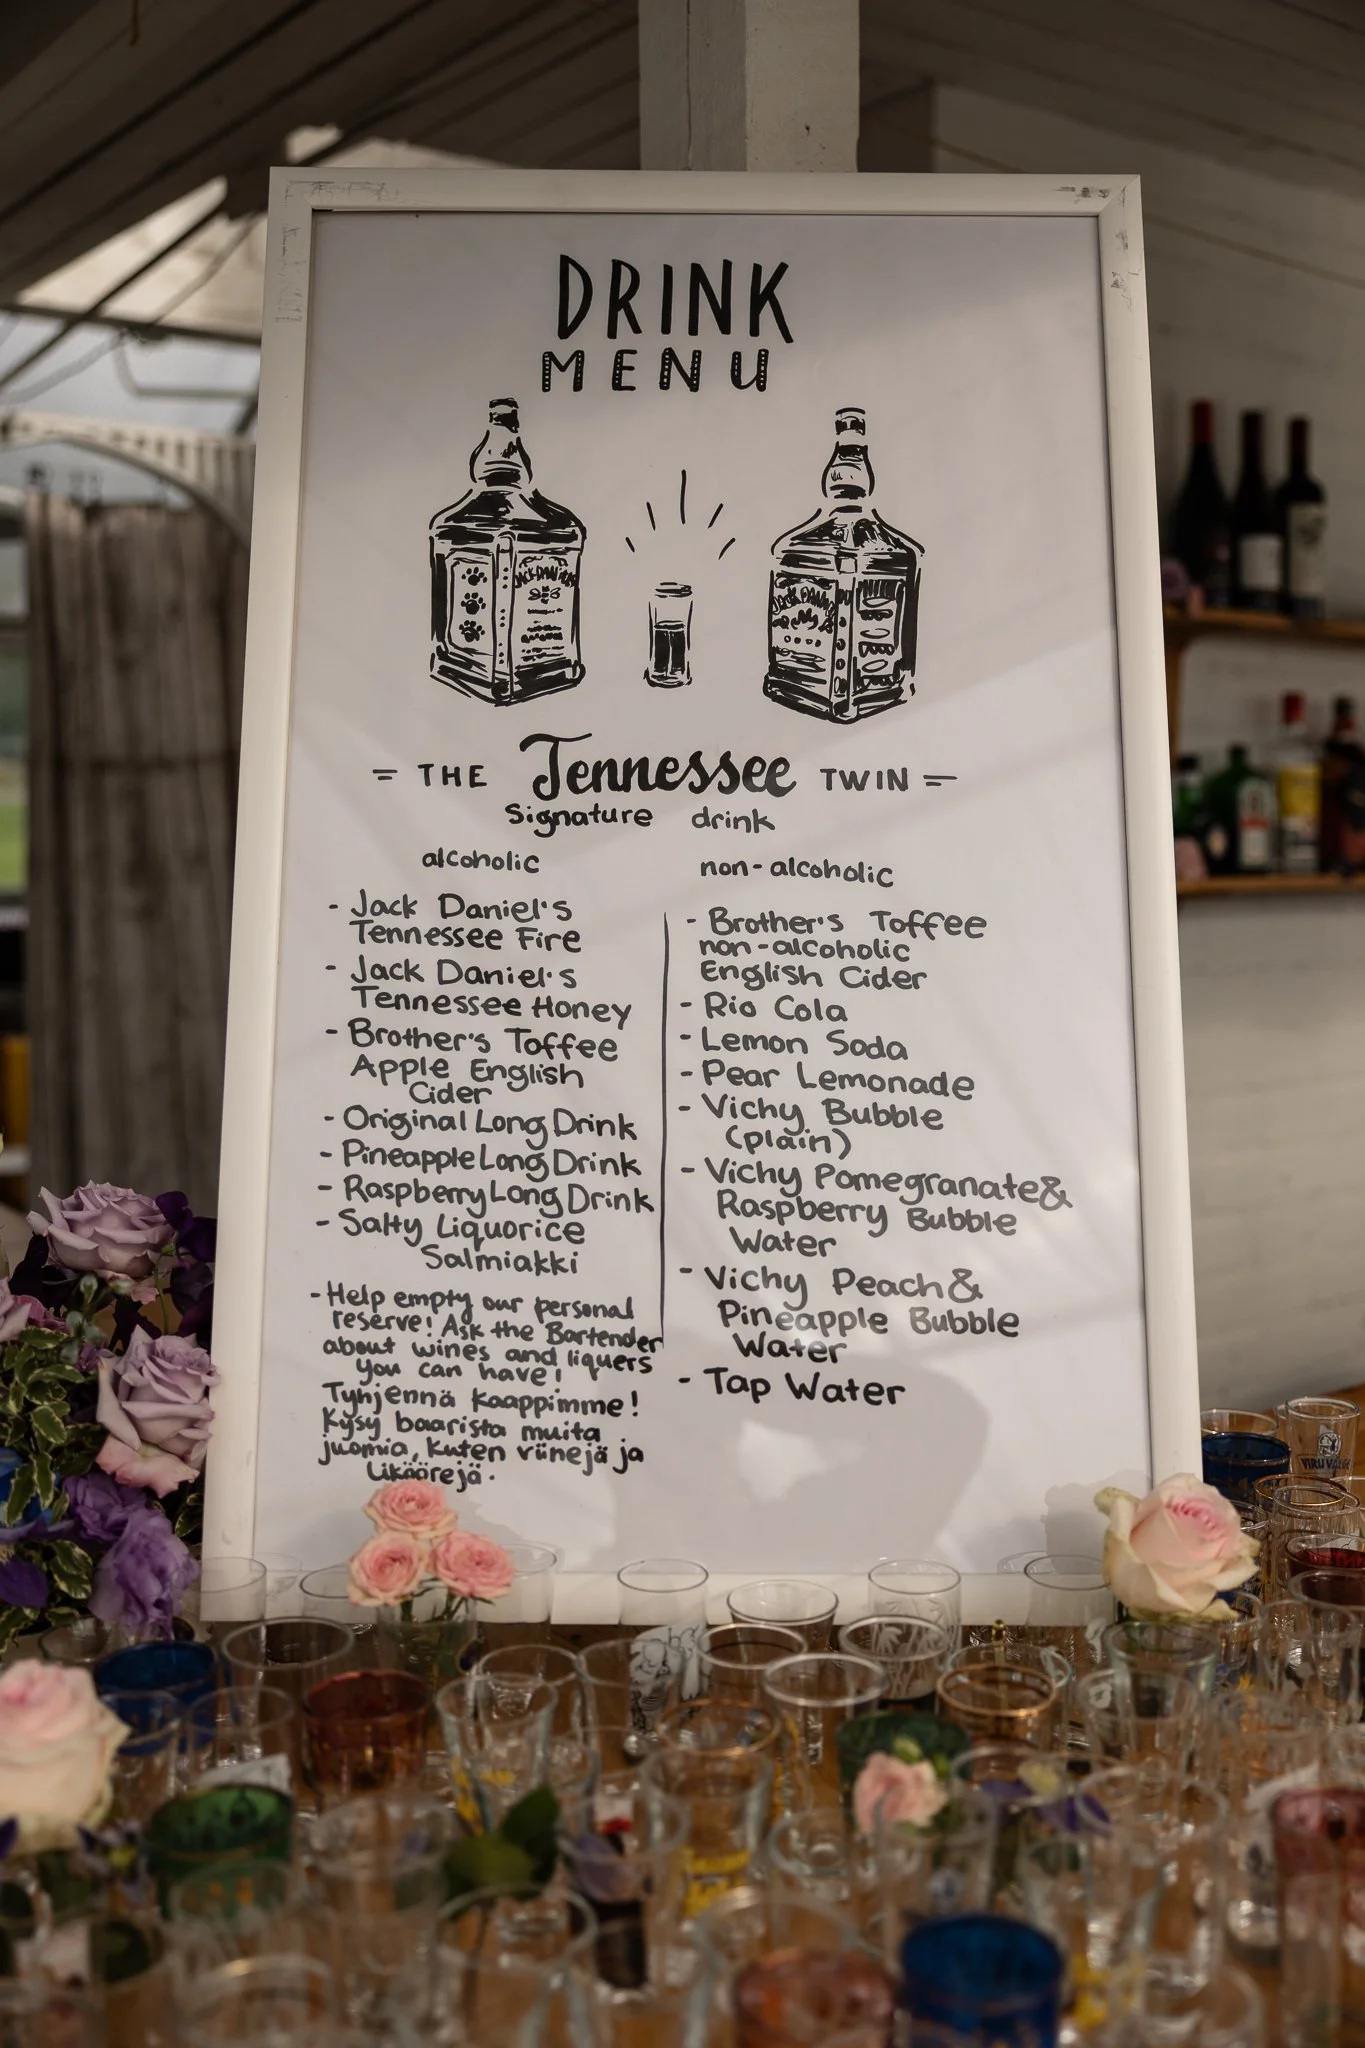 DRINK
MENU
JACK DANIEL'S
JACK DANIEL'S
= THE Tennessee TWIN =
Signature drink
alcoholic
- Jack Daniel's
Tennessee Fire
- Jack Daniel's
Tennessee Honey
- Brother's Toffee
Apple English
Cider
- Original Long Drink
- Pineapple Long Drink
- Raspberry Long Drink
- Salty Liquorice
Salmiakki
- Help empty our personal
reserve! Ask the Bartender
about wines and liquers
you can have!
Tyhjennä kaappimme!
Kysy baarista muita
juomia, kuten viinejä ja
Liköörejä.
non-alcoholic
- Brother's Toffee
non-alcoholic
English Cider
- Rio Cola
- Lemon Soda
- Pear Lemonade
- Vichy Bubble
(plain)
- Vichy Pomegranate&
Raspberry Bubble
Water
- Vichy Peach&
Pineapple Bubble
Water
- Tap Water
VIRU VALGE